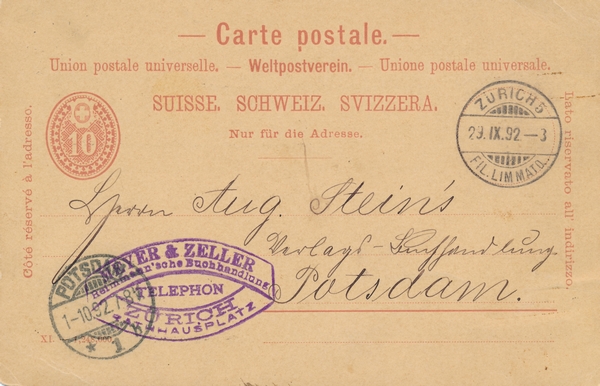 — Carte postale. —
Union postale universelle. — Weltpostverein. — Unione postale universale.
SUISSE. SCHWEIZ. SVIZZERA.
Nur für die Adresse.
10
Côté réservé à l'adresse.
Lato riservato all' indirizzo.
ZÜRICH 5
29. IX. 92 – 3
FIL. LIMMATQ.
Herrn Aug. Stein's
Verlags-Buchhandlung
Potsdam.
MEYER & ZELLER
Reimmann'sche Buchhandlung
TELEPHON
ZÜRICH
RATHAUSPLATZ
POTSDAM
1-10.92.
* 1
XI.